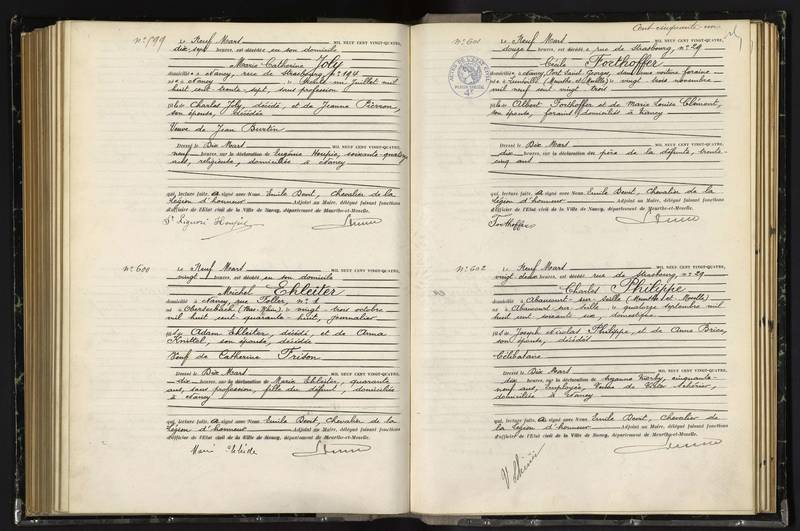 N° 599
Le Neuf Mars MIL NEUF CENT VINGT-QUATRE,
dix sept heures, est décédée en son domicile
Marie Catherine Joly
domiciliée à Nancy, rue de Strasbourg, n° 194
née à Nancy le Trente un Juillet mil
huit cent trente-sept, sans profession
fille de Charles Joly, décédé, et de Jeanne Pierron,
son épouse, décédée
Veuve de Jean Burtin
Dressé le Dix Mars MIL NEUF CENT VINGT-QUATRE,
neuf heures, sur la déclaration de Eugénie Houpie, soixante-quatorze
ans, religieuse, domiciliée à Nancy
qui, lecture faite, a signé avec Nous. Emile Bevit, Chevalier de la
Légion d'honneur Adjoint au Maire, délégué faisant fonctions
d'officier de l'Etat civil de la Ville de Nancy, département de Meurthe-et-Moselle.
N° 600
Le Neuf Mars MIL NEUF CENT VINGT-QUATRE,
vingt heures, est décédé en son domicile
Michel Ehleiter
domicilié à Nancy, rue Toller, n° 1
né à Oberseebach (Bas-Rhin) le vingt-trois octobre
mil huit cent quarante-huit, journalier
fils de Adam Ehleiter, décédé, et de Anna
Knittel, son épouse, décédée
Veuf de Catherine Frison
Dressé le Dix Mars MIL NEUF CENT VINGT-QUATRE,
dix heures, sur la déclaration de Marie Ehleiter, quarante
ans, sans profession, fille du défunt, domiciliée
à Nancy
qui, lecture faite, a signé avec Nous. Emile Bevit, Chevalier de la
Légion d'honneur Adjoint au Maire, délégué faisant fonctions
d'officier de l'Etat civil de la Ville de Nancy, département de Meurthe-et-Moselle.
Cent cinquante un
N° 601
Le Neuf Mars MIL NEUF CENT VINGT-QUATRE,
douze heures, est décédée rue de Strasbourg, n° 29
Cécile Forthoffer
domiciliée à Nancy, Port Saint-Georges, dans une voiture foraine
née à Lunéville (Meurthe et Moselle) le vingt-trois novembre
mil neuf cent vingt trois
fille de Albert Forthoffer et de Marie Louise Clément,
son épouse, forains, domiciliés à Nancy
Dressé le Dix Mars MIL NEUF CENT VINGT-QUATRE,
dix heures, sur la déclaration du père de la défunte, trente-
cinq ans
qui, lecture faite, a signé avec Nous. Emile Bevit, Chevalier de la
Légion d'honneur Adjoint au Maire, délégué faisant fonctions
d'officier de l'Etat civil de la Ville de Nancy, département de Meurthe-et-Moselle.
Forthoffer
N° 602
Le Neuf Mars MIL NEUF CENT VINGT-QUATRE,
vingt deux heures, est décédé rue de Strasbourg, n° 29
Charles Philippe
domicilié à Abaucourt-sur-Seille (Meurthe et Moselle)
né à Abaucourt-sur-Seille le quatorze septembre mil
huit cent soixante six, domestique
fils de Joseph Nicolas Philippe, et de Anne Brice,
son épouse, décédés
Célibataire
Dressé le Dix Mars MIL NEUF CENT VINGT-QUATRE,
dix heures, sur la déclaration de Suzanne cinquante-
neuf ans, employée, Veuve de Victor
domiciliée à Nancy
qui, lecture faite, a signé avec Nous. Emile Bevit, Chevalier de
la Légion d'honneur Adjoint au Maire, délégué faisant fonctions
d'officier de l'Etat civil de la Ville de Nancy, département de Meurthe-et-Moselle.